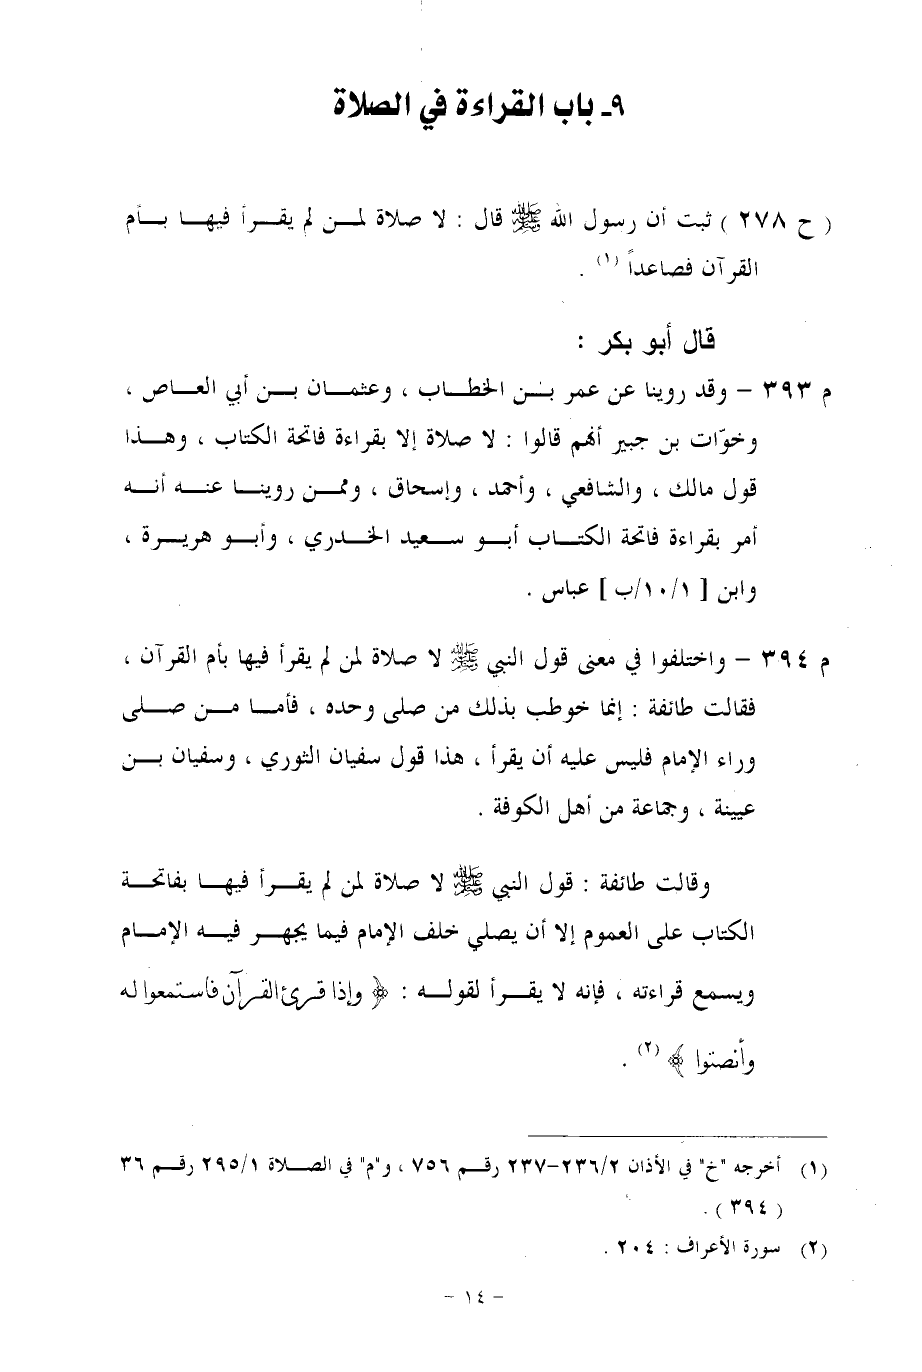 ٩ـ باب القراءة في الصلاة
( ح ٢٧٨ ) ثبت أن رسول الله ﷺ قال : لا صلاة لمـن لم يقـرأ فيهـا بـأم
القرآن فصاعداً (١) .
قال أبو بكر :
م ٣٩٣ – وقد روينا عن عمر بـن الخطـاب ، وعثمـان بـن أبي العـاص ،
وخوّات بن جبير أنهم قالوا : لا صلاة إلا بقراءة فاتحة الكتاب ، وهـذا
قول مالك ، والشافعي ، وأحمد ، وإسحاق ، وممـن روينـا عنـه أنـه
أمر بقراءة فاتحة الكتـاب أبـو سـعيد الخـدري ، وأبـو هريـرة ،
وابن [ ١٠/١/ب ] عباس .
م ٣٩٤ – واختلفوا في معنى قول النبي ﷺ لا صلاة لمن لم يقرأ فيها بأم القرآن ،
فقالت طائفة : إنما خوطب بذلك من صلى وحده ، فأمـا مـن صـلى
وراء الإمام فليس عليه أن يقرأ ، هذا قول سفيان الثوري ، وسفيان بـن
عيينة ، وجماعة من أهل الكوفة .
وقالت طائفة : قول النبي ﷺ لا صلاة لمن لم يقـرأ فيهـا بفاتحـة
الكتاب على العموم إلا أن يصلي خلف الإمام فيما يجهـر فيـه الإمـام
ويسمع قراءته ، فإنه لا يقـرأ لقولـه : ﴿ وإذا قرئ القرآن فأستمعوا له
وأنصتوا ﴾ (٢) .
(١) أخرجه "خ" في الأذان ٢٣٦/٢–٢٣٧ رقـم ٧٥٦ ، و"م" في الصـلاة ٢٩٥/١ رقـم ٣٦
( ٣٩٤ ) .
(٢) سورة الأعراف : ٢٠٤ .
– ١٤ –